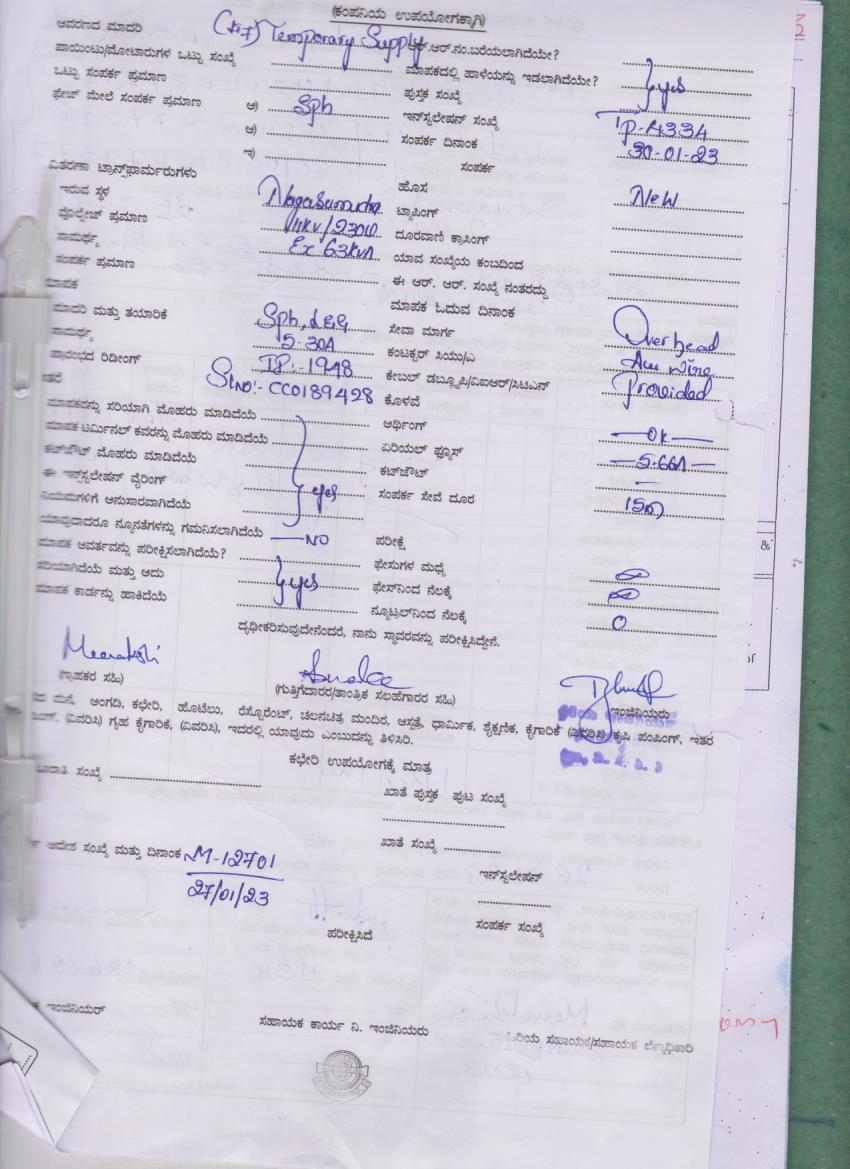 (ಕಂಪನಿಯ ಉಪಯೋಗಕ್ಕಾಗಿ)
ಆವರಣದ ಮಾದರಿ (LT-7) Temporary Supply ಆರ್.ಆರ್.ನಂ.ಬರೆಯಲಾಗಿದೆಯೇ?
ಪಾಯಿಂಟು/ಮೋಟಾರುಗಳ ಒಟ್ಟು ಸಂಖ್ಯೆ ಮಾಪಕದಲ್ಲಿ ಹಾಳೆಯನ್ನು ಇಡಲಾಗಿದೆಯೇ? } yes
ಒಟ್ಟು ಸಂಪರ್ಕ ಪ್ರಮಾಣ ಪುಸ್ತಕ ಸಂಖ್ಯೆ
ಫೇಜ್ ಮೇಲೆ ಸಂಪರ್ಕ ಪ್ರಮಾಣ ಅ) Sph ಇನ್‌ಸ್ಟಲೇಷನ್ ಸಂಖ್ಯೆ TP-A334
ಆ) ಸಂಪರ್ಕ ದಿನಾಂಕ 30-01-23
ಇ) ಸಂಪರ್ಕ
ವಿತರಣಾ ಟ್ರಾನ್ಸ್‌ಫಾರ್ಮರುಗಳು ಹೊಸ New
ಇರುವ ಸ್ಥಳ Nagasamudra ಟ್ಯಾಪಿಂಗ್
ವೋಲ್ಟೇಜ್ ಪ್ರಮಾಣ 11KV/230V ದೂರವಾಣಿ ಕ್ರಾಸಿಂಗ್
ಸಾಮರ್ಥ್ಯ Ex 63KVA ಯಾವ ಸಂಖ್ಯೆಯ ಕಂಬದಿಂದ
ಸಂಪರ್ಕ ಪ್ರಮಾಣ ಈ ಆರ್. ಆರ್. ಸಂಖ್ಯೆ ನಂತರದ್ದು
ಮಾಪಕ ಮಾಪಕ ಓದುವ ದಿನಾಂಕ
ಮಾದರಿ ಮತ್ತು ತಯಾರಿಕೆ Sph, L&G ಸೇವಾ ಮಾರ್ಗ Overhead
ಸಾಮರ್ಥ್ಯ 5-30A ಕಂಟಕ್ಟರ್ ಸಿಯು/ಎ
ಪ್ರಾರಂಭದ ರಿಡೀಂಗ್ IR:-1948 ಕೇಬಲ್ ಡಬ್ಲ್ಯೂಪಿ/ವಿಐಆರ್/ಸಿಟಿಎಸ್ Provided
Slno:- CC0189428 ಕೊಳವೆ
ಮಾಪಕವನ್ನು ಸರಿಯಾಗಿ ಮೊಹರು ಮಾಡಿದೆಯೆ ಅರ್ಥಿಂಗ್ —OK—
ಮಾಪಕ ಟರ್ಮಿನಲ್ ಕವರನ್ನು ಮೊಹರು ಮಾಡಿದೆಯೆ ಏರಿಯಲ್ ಫ್ಯೂಸ್ —5.66A—
ಕಟ್‌ಔಟ್ ಮೊಹರು ಮಾಡಿದೆಯೆ ಕಟ್‌ಔಟ್ —
ಈ ಇನ್‌ಸ್ಟಲೇಷನ್ ವೈರಿಂಗ್ } yes ಸಂಪರ್ಕ ಸೇವೆ ದೂರ 15m
ನಿಯಮಗಳಿಗೆ ಅನುಸಾರವಾಗಿದೆಯೆ
ಯಾವುದಾದರೂ ನ್ಯೂನತೆಗಳನ್ನು ಗಮನಿಸಲಾಗಿದೆಯೆ —NO ಪರೀಕ್ಷೆ
ಮಾಪಕ ಆವರ್ತವನ್ನು ಪರೀಕ್ಷಿಸಲಾಗಿದೆಯೆ? ಫೇಸುಗಳ ಮಧ್ಯೆ ∞
ಸರಿಯಾಗಿದೆಯೆ ಮತ್ತು ಅದು } yes ಫೇಸ್‌ನಿಂದ ನೆಲಕ್ಕೆ ∞
ಮಾಪಕ ಕಾರ್ಡನ್ನು ಹಾಕಿದೆಯೆ ನ್ಯೂಟ್ರಲ್‌ನಿಂದ ನೆಲಕ್ಕೆ 0
ದೃಢೀಕರಿಸುವುದೇನೆಂದರೆ, ನಾನು ಸ್ಥಾವರವನ್ನು ಪರೀಕ್ಷಿಸಿದ್ದೇನೆ.
Meenakshi
(ಗ್ರಾಹಕರ ಸಹಿ) (ಗುತ್ತಿಗೆದಾರರ/ತಾಂತ್ರಿಕ ಸಲಹೆಗಾರರ ಸಹಿ) ಇಂಜಿನಿಯರು
ಮನೆ, ಅಂಗಡಿ, ಕಛೇರಿ, ಹೊಟೆಲು, ರೆಸ್ಟೊರೆಂಟ್, ಚಲನಚಿತ್ರ ಮಂದಿರ, ಆಸ್ಪತ್ರೆ, ಧಾರ್ಮಿಕ, ಶೈಕ್ಷಣಿಕ, ಕೈಗಾರಿಕೆ (ವಿವರಿಸಿ) ಕೃಷಿ ಪಂಪಿಂಗ್, ಇತರ
(ವಿವರಿಸಿ) ಗೃಹ ಕೈಗಾರಿಕೆ, (ವಿವರಿಸಿ), ಇದರಲ್ಲಿ ಯಾವುದು ಎಂಬುದನ್ನು ತಿಳಿಸಿರಿ.
ಕಛೇರಿ ಉಪಯೋಗಕ್ಕೆ ಮಾತ್ರ
ಸಂಖ್ಯೆ ಖಾತೆ ಪುಸ್ತಕ ಪುಟ ಸಂಖ್ಯೆ
ಖಾತೆ ಸಂಖ್ಯೆ
ಆದೇಶ ಸಂಖ್ಯೆ ಮತ್ತು ದಿನಾಂಕ M-12701
27/01/23
ಇನ್‌ಸ್ಟಲೇಷನ್
ಸಂಪರ್ಕ ಸಂಖ್ಯೆ
ಪರೀಕ್ಷಿಸಿದೆ
ಇಂಜಿನಿಯರ್ ಸಹಾಯಕ ಕಾರ್ಯ ನಿ. ಇಂಜಿನಿಯರು ಹಿರಿಯ ಸಹಾಯಕ/ಸಹಾಯಕ ಲೆಕ್ಕಾಧಿಕಾರಿ